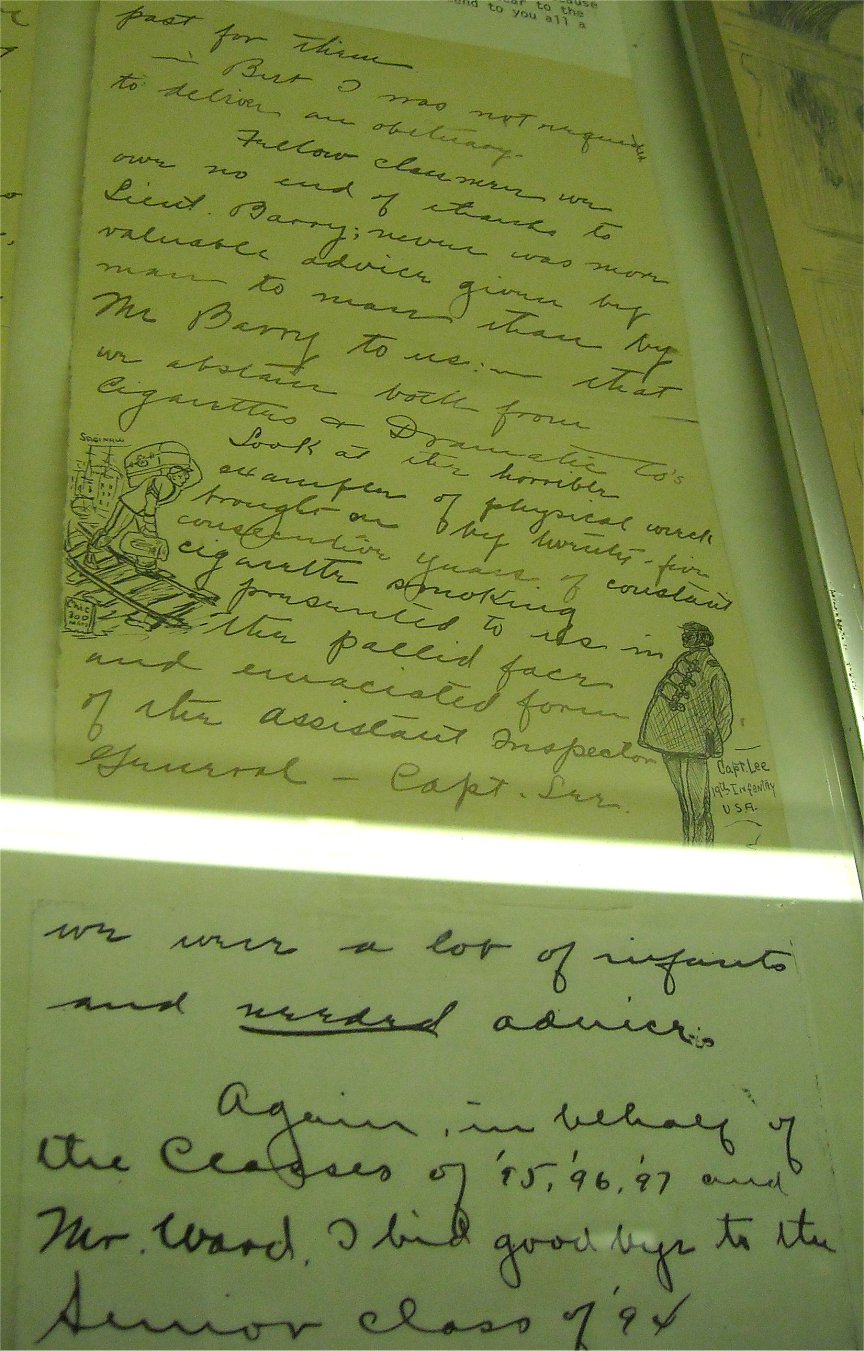 ause
ear to the
end to you all a
past for them
— But I was not required
to deliver an obituary.
Fellow classmen we
owe no end of thanks to
Lieut. Barry; never was more
valuable advice given by
man to man than by
Mr Barry to us:— that
we abstain both from
cigarettes & Dramatic Co's
Look at the horrible
example of physical wreck
brought on by twenty-five
consecutive years of constant
cigarette smoking
presented to us in
the pallid face
and emaciated form
of the Assistant Inspector
General — Capt. Lee.
SAGINAW
CHIC
300
MILES
Capt. Lee
19th Infantry
U.S.A.
we were a lot of infants
and needed advice.
Again, in behalf of
the Classes of '95, '96, '97 and
Mr. Ward, I bid good bye to the
Senior class of '94